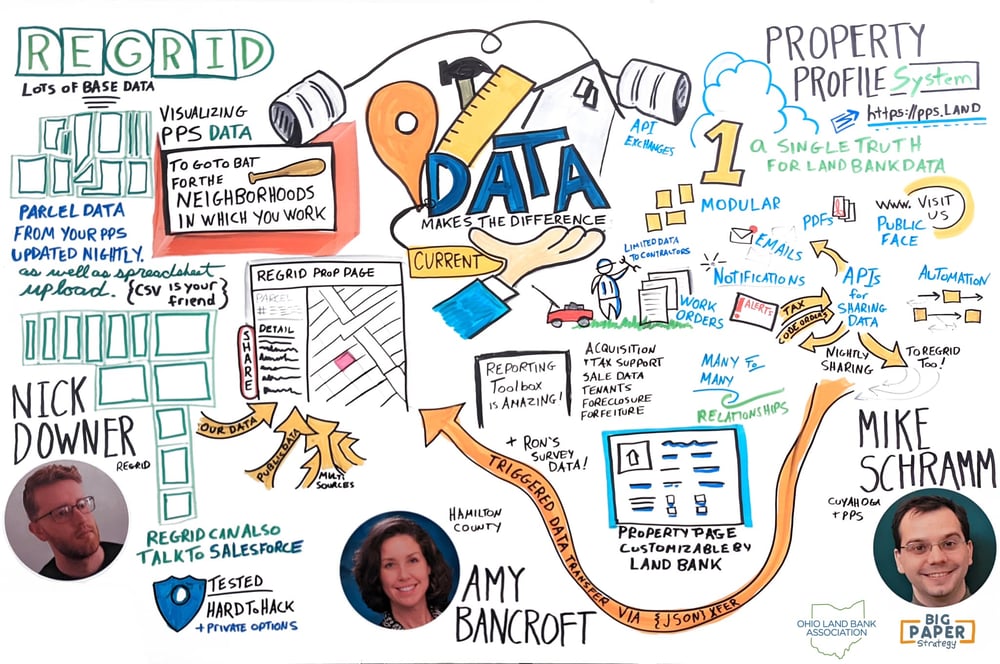 REGRID
LOTS OF BASE DATA
PARCEL DATA
FROM YOUR PPS
UPDATED NIGHTLY.
as well as spreadsheet
upload. {CSV is your
friend}
VISUALIZING
PPS DATA
TO GO TO BAT
FOR THE
NEIGHBORHOODS
IN WHICH YOU WORK
DATA
MAKES THE DIFFERENCE
CURRENT
API
EXCHANGES
PROPERTY
PROFILE System
https://pps.LAND
1
a SINGLE TRUTH
FOR LAND BANK DATA
MODULAR
PDFs
WWW. VISIT
US
PUBLIC
FACE
LIMITED DATA
TO CONTRACTORS
EMAILS
Notifications
WORK
ORDERS
!ALERTS!
TAX
CODE ORDERS
APIs
for
SHARING
DATA
AUTOMATION
NIGHTLY
SHARING
TO REGRID
TOO!
REGRID PROP PAGE
PARCEL
DETAIL
SHARE
REPORTING
Toolbox
is AMAZING!
ACQUISITION
+TAX SUPPORT
SALE DATA
TENANTS
FORECLOSURE
FORFEITURE
MANY To
MANY
RELATIONSHIPS
+ RON'S
SURVEY
DATA!
OUR DATA
PUBLIC DATA
MULTI
SOURCES
NICK
DOWNER
REGRID
REGRID CAN ALSO
TALK TO SALESFORCE
TESTED
HARD TO HACK
+ PRIVATE OPTIONS
HAMILTON
COUNTY
AMY
BANCROFT
TRIGGERED DATA TRANSFER VIA {JSON} XFER
PROPERTY PAGE
CUSTOMIZABLE BY
LAND BANK
MIKE
SCHRAMM
CUYAHOGA
+ PPS
OHIO LAND BANK
ASSOCIATION
BIG
PAPER
Strategy